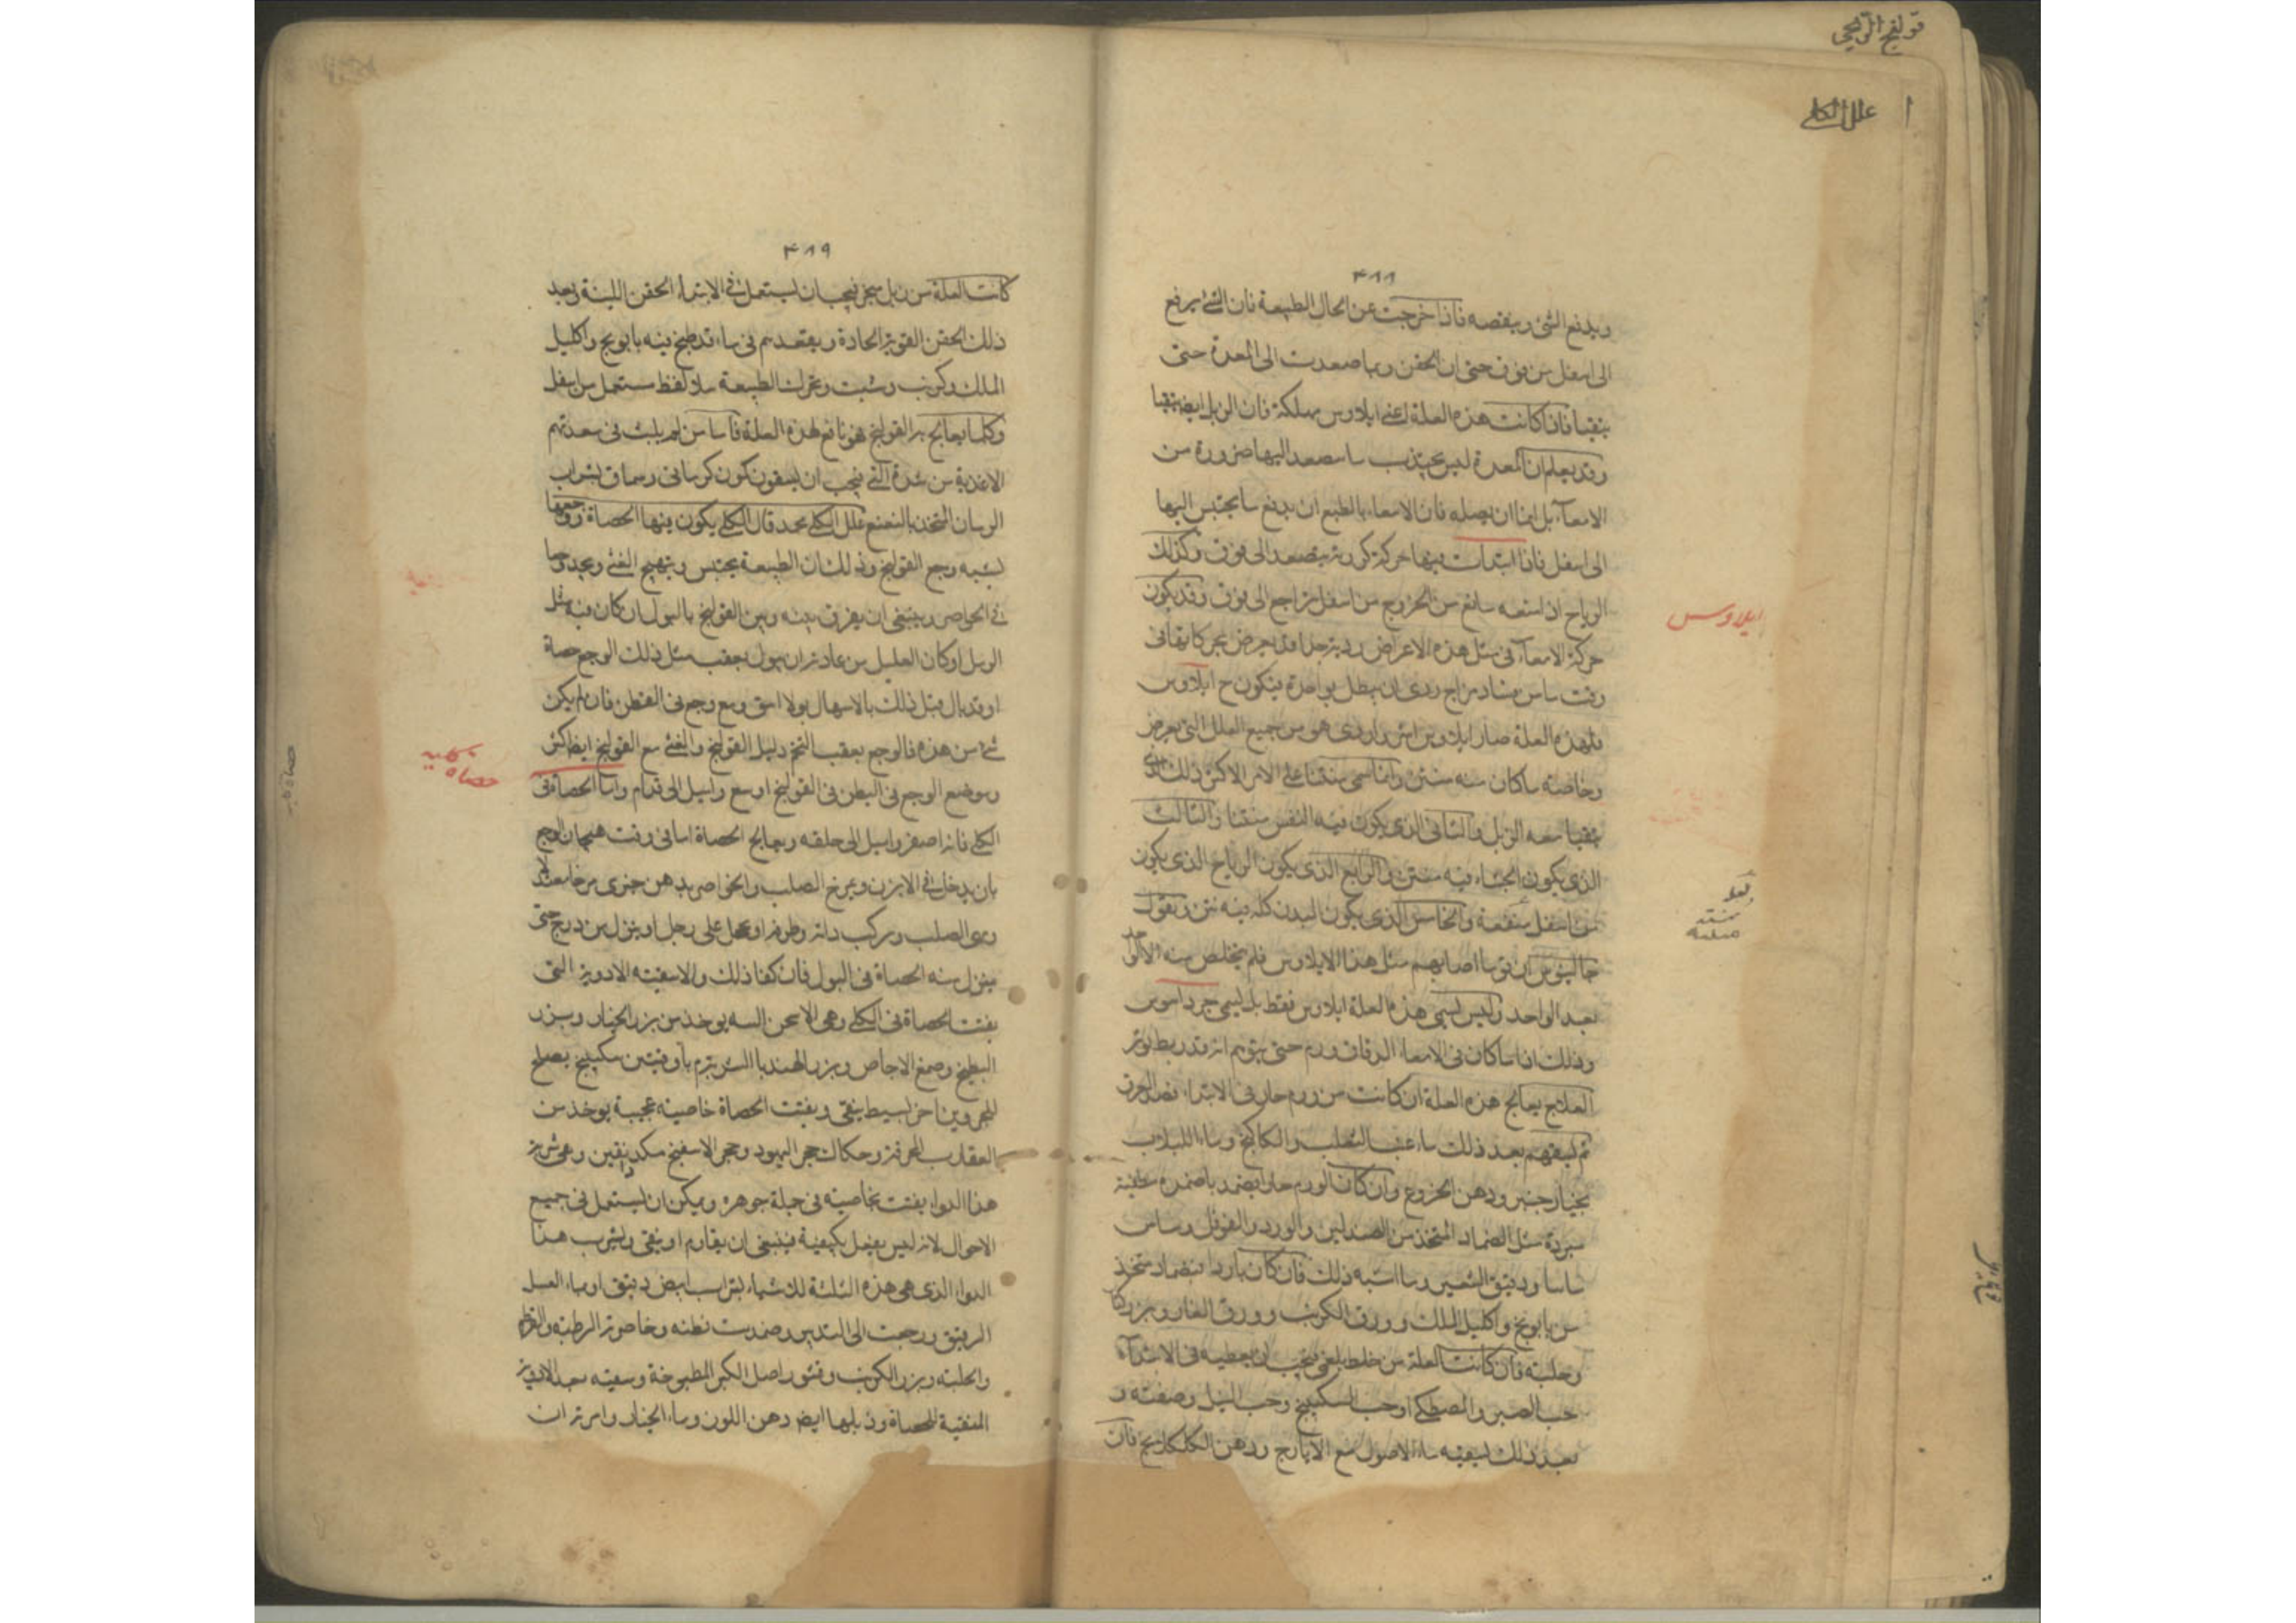 قولنج الريحي
علل الكلى
۴۸۸
ويدفع الشئ وينقصه فاذا خرجت عن الحال الطبيعة فان الشئ يرفع
الى اسفل من فوق حتى ان الحقن ربما صعدت الى المعدة حتى
يتقيا فاذا كانت هذه العلة اعنى ايلاوس مهلكة فان الزبل ايضا يتقيا
وقد يعلم ان المعدة ليس يجتذب ما يصعد اليها ضرورة من
الامعاء بل انما ان يصله فان الامعاء بالطبع ان يدفع ما يحتبس اليها
الى اسفل فاذا ابتدأت فيها حركة يصعد الى فوق وكذلك
الرياح اذا منعه مانع من الخروج من اسفل تراجع الى فوق وقد يكون
حركة الامعاء فى مثل هذه الاعراض ردية جدا
ايلاوس
وقت ما من فساد مزاج ردى ان يبطل بواحدة فيكون ح ايلاوس
فلهذه العلة صار ايلاوس اشر واردى هو من جميع العلل التى يعرض
وخاصة ما كان منه منتن وانما سمى منتنا على الامر الاكثر ذلك الذى
يتقيا معه الزبل والثانى الذى يكون فيه النفس منتنا والثالث
الذى يكون الجشاء فيه منتن والرابع الذى يكون الرياح الذى يكون
من اسفل منتنة والخامس الذى يكون البدن كله فيه نتن ويقول
جالينوس ان قوما اصابهم مثل هذا الايلاوس فلم يتخلص منه الا الواحد
بعد الواحد وليس يسمى هذه العلة ايلاوس فقط بل يسمى جرداسوس
وذلك اذا ما كان فى الامعاء الدقاق ورم حتى يتوهم انه قد ربط بوتر
العلاج يعالج هذه العلة ان كانت من ورم حار فى الابتداء فصد العرق
ثم يسقيهم بعد ذلك ماء عنب الثعلب والكاكنج وماء اللبلاب
بخيار جنبر ودهن الخروع وان كان الورم حارا يضمد باضمدة
مبردة مثل الضماد المتخذ من الصندلين والورد والفوفل وماس
ماسا ودقيق الشعير وما اشبه ذلك فان كان باردا فيضماد متخذ
من بابونج واكليل الملك وورق الكرنب وورق الغار وبزر كتان
وحلبة فان كانت العلة من خلط بلغمى فيجب ان يعطيه فى الابتداء
حب الصبر والمصطكى او حب السكبينج وحب النيل وصفته و
بعد ذلك يسقيه ماء الاصول مع الايارج ودهن الكلكلانج فان
۴۸۹
كانت العلة من زبل متحجر فيجب ان يستعمل فى الابتداء الحقن اللينة وبعد
ذلك الحقن القوية الحادة ويقعدهم فى ماء قد طبخ فيه بابونج واكليل
الملك وكرنب وشبت وتحرك الطبيعة ستعمل من اسفل
وكلما يعالج به القولنج فهو نافع لهذه العلة فاما من لم يلبث فى معدتهم
الاغذية من شدة القئ فيجب ان يسقون كمون كرمانى وسماق بشراب
الرمان المتخذ بالنعنع علل الكلى محمد قال الكلى يكون فيها الحصاة ووجعها
يشبه وجع القولنج وذلك ان الطبيعة يحتبس ويتهيج القئ ويجد وجعا
فى الخواصر وينبغى ان يفرق بينه وبين القولنج بالبول ان كان فيه مثل
الرمل او كان العليل من عادته ان يبول بعقب مثل ذلك الوجع حصاة
او قد بال قبل ذلك بالاسهال بولا مع وجع فى القطن فان لم يكن
شئ من هذه فالوجع بعقب التخم دليل القولنج والقئ مع القولنج ايضا اكثر
حصاة كلية
وموضع الوجع فى البطن فى القولنج اوسع واميل الى قدام واما الحصاة فى
الكلى فانه اصغر واميل الى خلفه ويعالج الحصاة اما فى وقت هيجان الوجع
بان يدخل فى الابزن ويمرخ الصلب والخواصر بدهن خيرى
ومى الصلب ويركب دابة وطوفه او يحمل على رجل او ينزل من درج حتى
ينزل منه الحصاة فى البول فان كفا ذلك والا سقيته الادوية التى
يفتت الحصاة فى الكلى وهى يوخذ من بزر الخيار وبزر
البطيخ وصمغ الاجاص وبزر الهندبا اوقيتين سكبينج يصلح
للمحرورين اخر بسيط ينقى ويفتت الحصاة خاصية عجيبة يوخذ من
العقارب المحرقة وحكاك حجر اليهود وحجر الاسفنج
هذا الدواء يفتت بخاصية فى جملة جوهره ويمكن ان يستعمل فى جميع
الاحوال لانه ليس يفعل بكيفية فينبغى ان يقاوم او ينقى ويشرب هذا
الدواء الذى هى هذه الثلثة الاشياء بشراب ابيض دقيق او بماء العسل
الرقيق ورجعت الى التدبير وضمدت بطنه وخاصرته الرطبة
والحلبة وبزر الكرنب وقشور اصل الكبر المطبوخة وسقيته بعد الادوية
المنقية للحصاة وذبلها ايضا دهن اللوز وماء الخيار وامرته ان